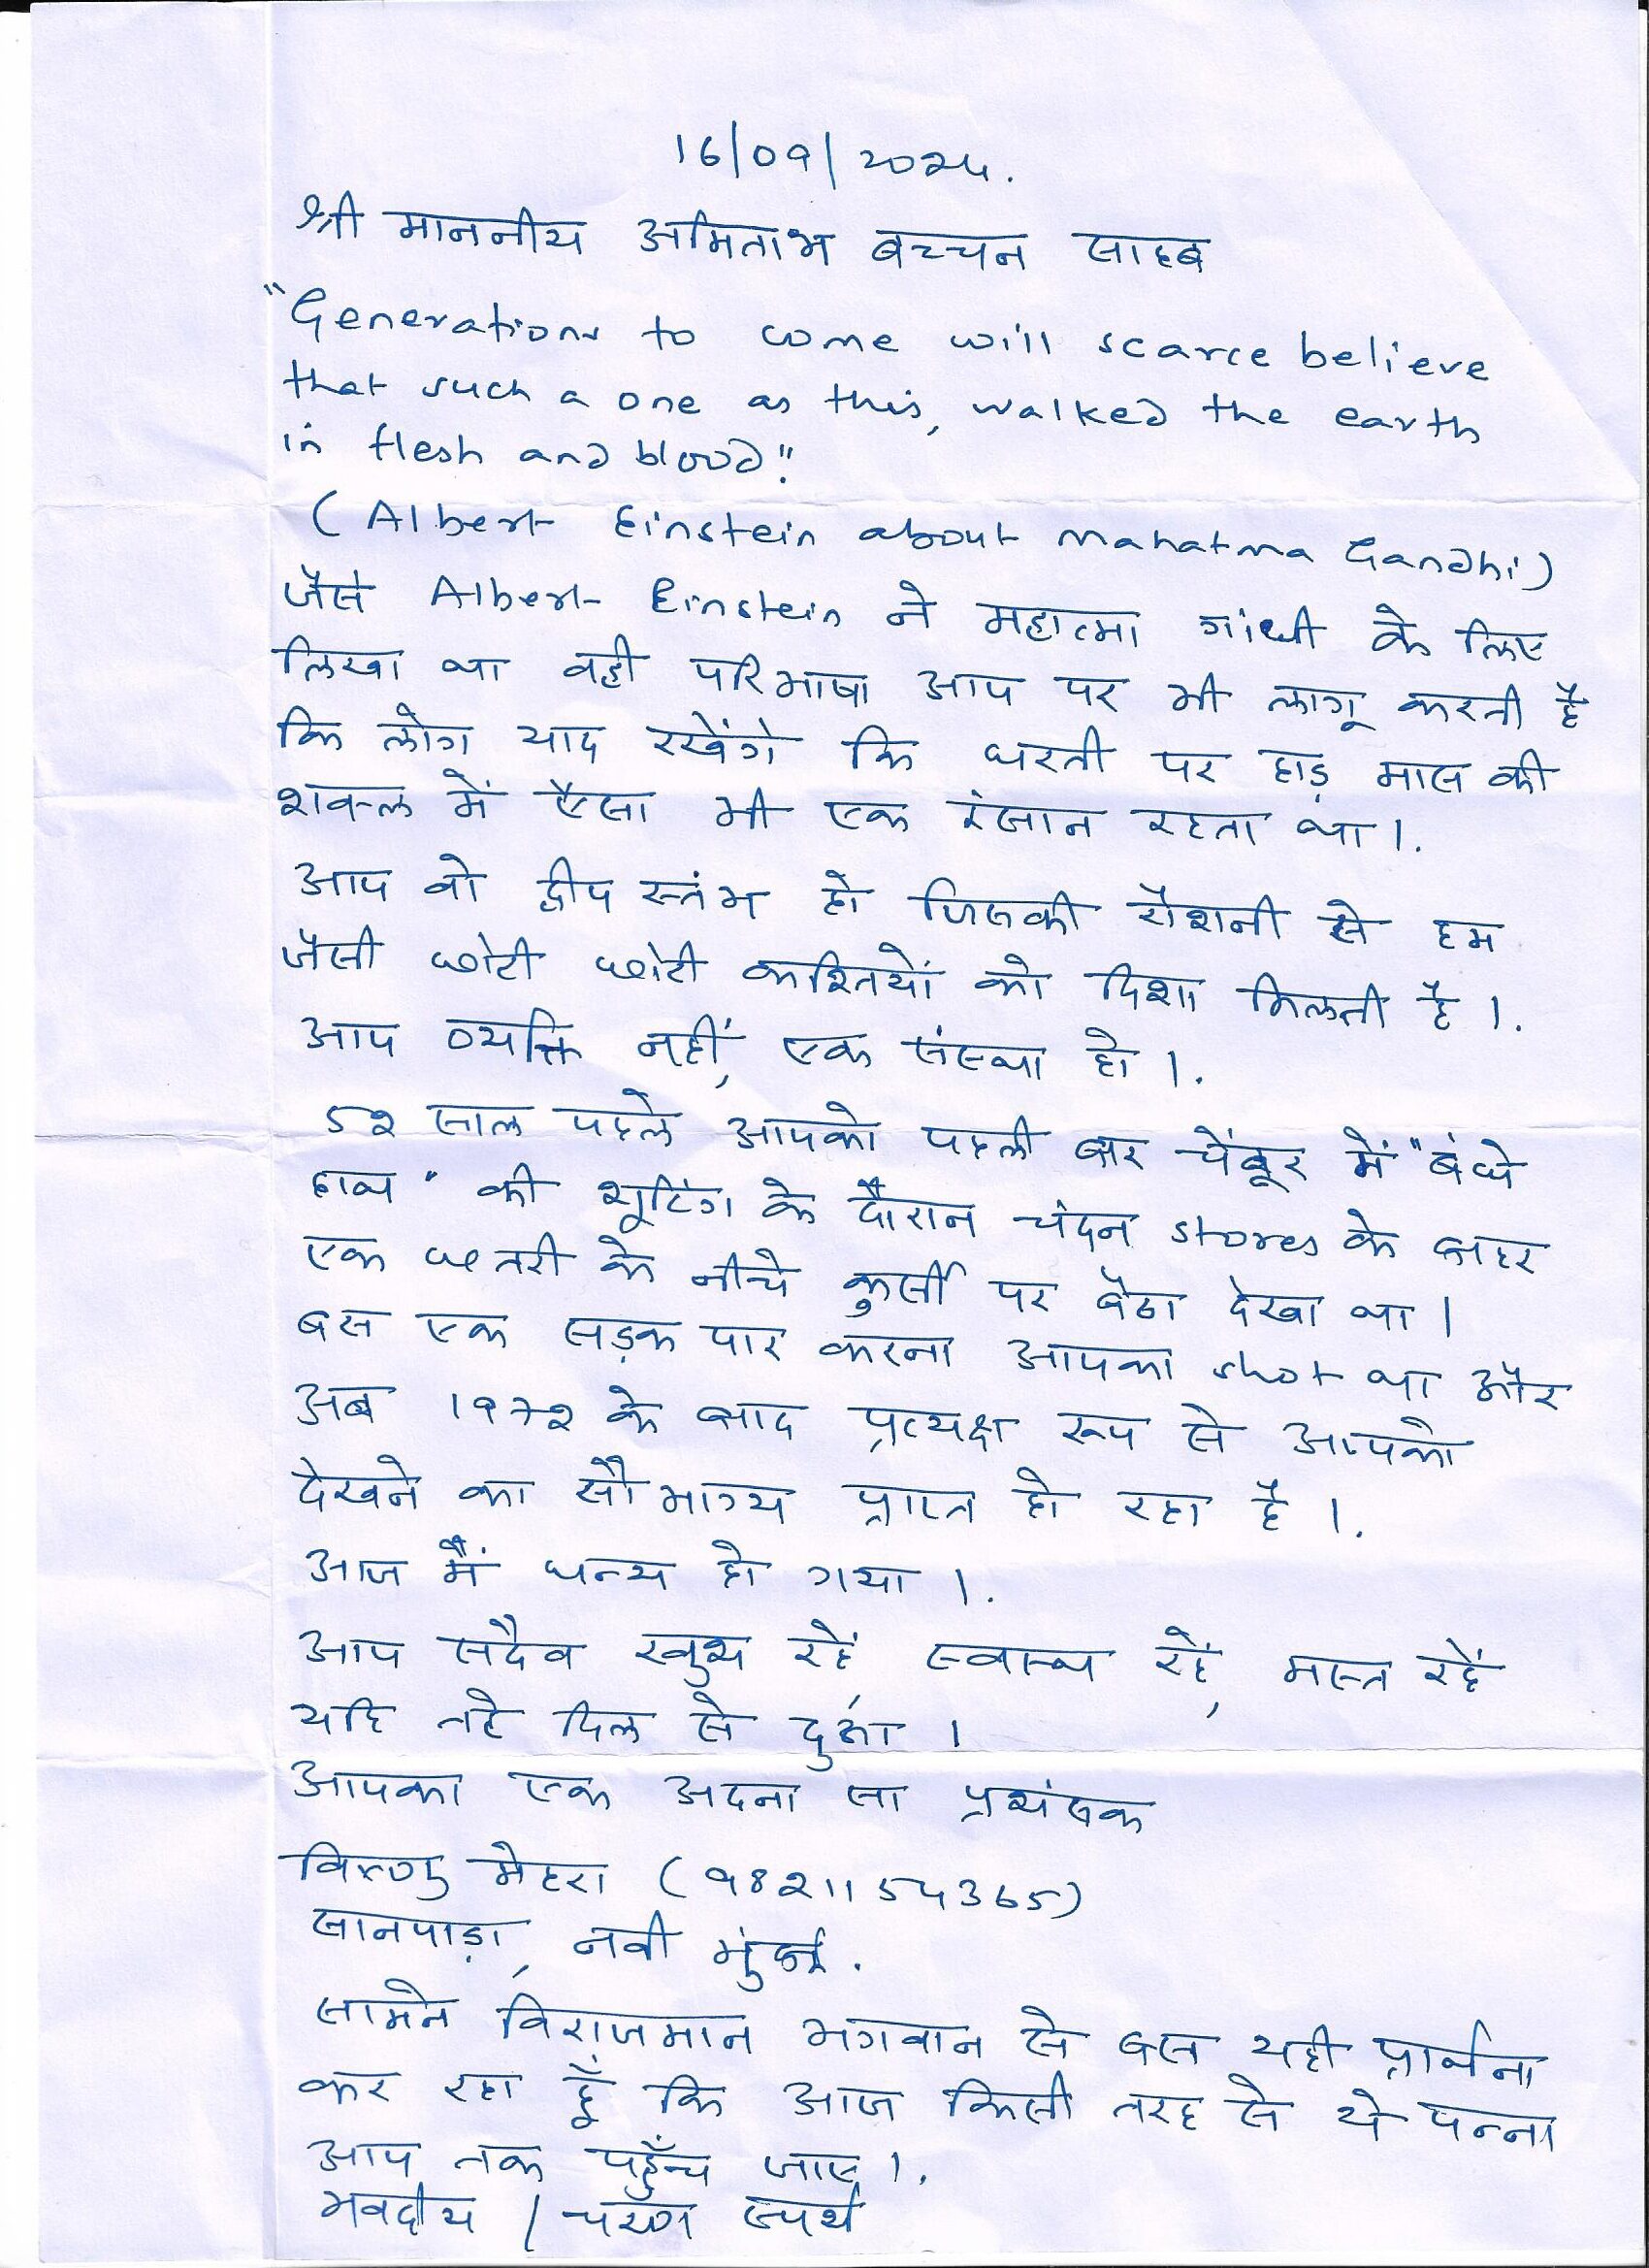 16/09/2024.
श्री माननीय अमिताभ बच्चन साहब
"Generations to come will scarce believe
that such a one as this, walked the earth
in flesh and blood".
(Albert Einstein about Mahatma Gandhi)
जैसे Albert Einstein ने महात्मा गांधी के लिए
लिखा था वही परिभाषा आप पर भी लागू करती है
कि लोग याद रखेंगे कि धरती पर हाड़ मास की
शक्ल में ऐसा भी एक इंसान रहता था।.
आप वो द्वीप स्तंभ हो जिसकी रोशनी से हम
जैसी छोटी छोटी कश्तियों को दिशा मिलती है।.
आप व्यक्ति नहीं, एक संस्था हो।.
52 साल पहले आपको पहली बार चेंबूर में "बंधे
हाथ" की शूटिंग के दौरान चंदन stores के बाहर
एक छतरी के नीचे कुर्सी पर बैठा देखा था।
बस एक सड़क पार करना आपका shot था और
अब 1972 के बाद प्रत्यक्ष रूप से आपको
देखने का सौभाग्य प्राप्त हो रहा है।.
आज मैं धन्य हो गया।.
आप सदैव खुश रहें, स्वास्थ रहें, मस्त रहें
यहि तहे दिल से दुआ।
आपका एक अदना सा प्रशंसक
विष्णु मेहरा (9821154365)
सानपाड़ा, नवी मुंबई.
सामने विराजमान भगवान से बस यही प्रार्थना
कर रहा हूँ कि आज किसी तरह से ये पन्ना
आप तक पहुँच जाए।.
भवदीय / चरण स्पर्श